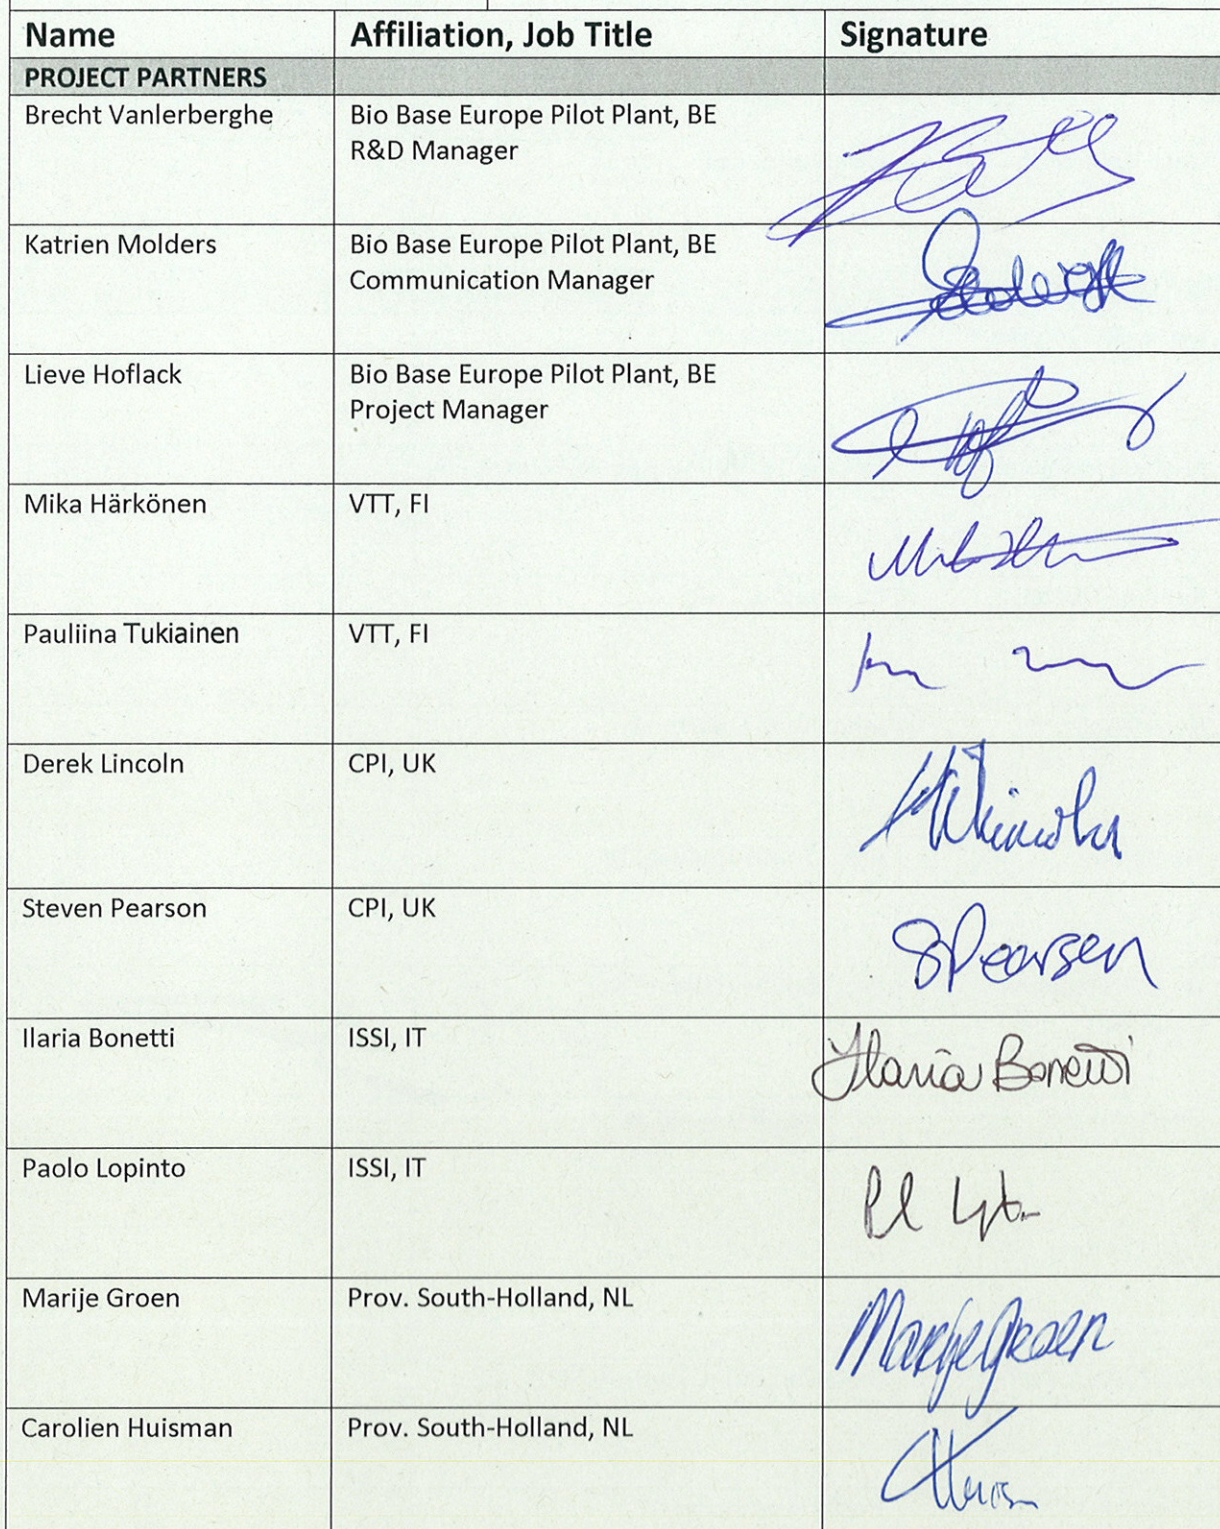 Name Affiliation, Job Title Signature
PROJECT PARTNERS
Brecht Vanlerberghe Bio Base Europe Pilot Plant, BE
R&D Manager
Katrien Molders Bio Base Europe Pilot Plant, BE
Communication Manager
Lieve Hoflack Bio Base Europe Pilot Plant, BE
Project Manager
Mika Härkönen VTT, FI
Pauliina Tukiainen VTT, FI
Derek Lincoln CPI, UK
Steven Pearson CPI, UK SPearson
Ilaria Bonetti ISSI, IT Ilaria Bonetti
Paolo Lopinto ISSI, IT
Marije Groen Prov. South-Holland, NL Marije Groen
Carolien Huisman Prov. South-Holland, NL